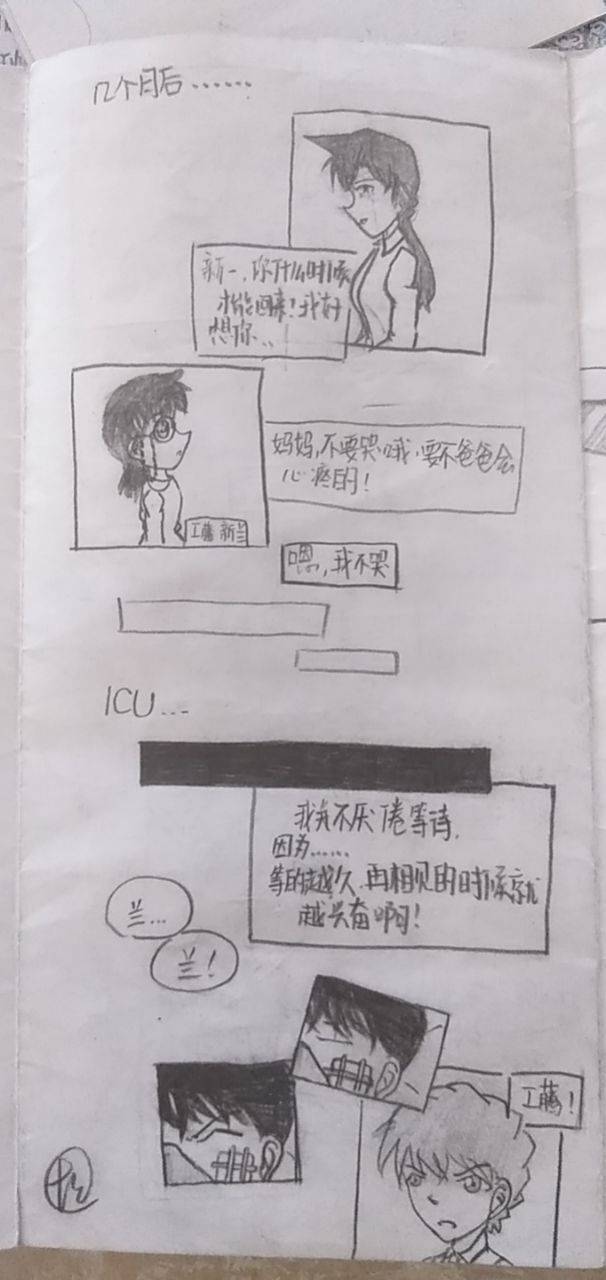 几个月后……
新一，你什么时候
才能回来！我好
想你…
妈妈，不要哭哦，要不爸爸会
心疼的！
工藤新兰
嗯，我不哭
ICU…
我并不厌倦等待，
因为……
等的越久，再相见的时候就
越兴奋啊！
兰…
兰！
工藤！